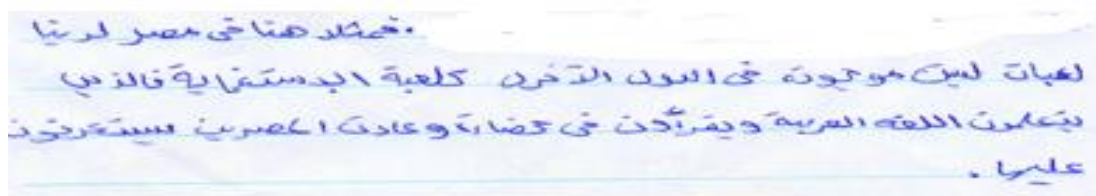 . فمثلا هنا في مصر لدينا
لعبات ليست موجودة في الدول الآخرى كلعبة الاستغماية فالذين
يتعلمون اللغه العربية ويقرأون في حضارة وعادات المصريين سيتعرفون
عليها .